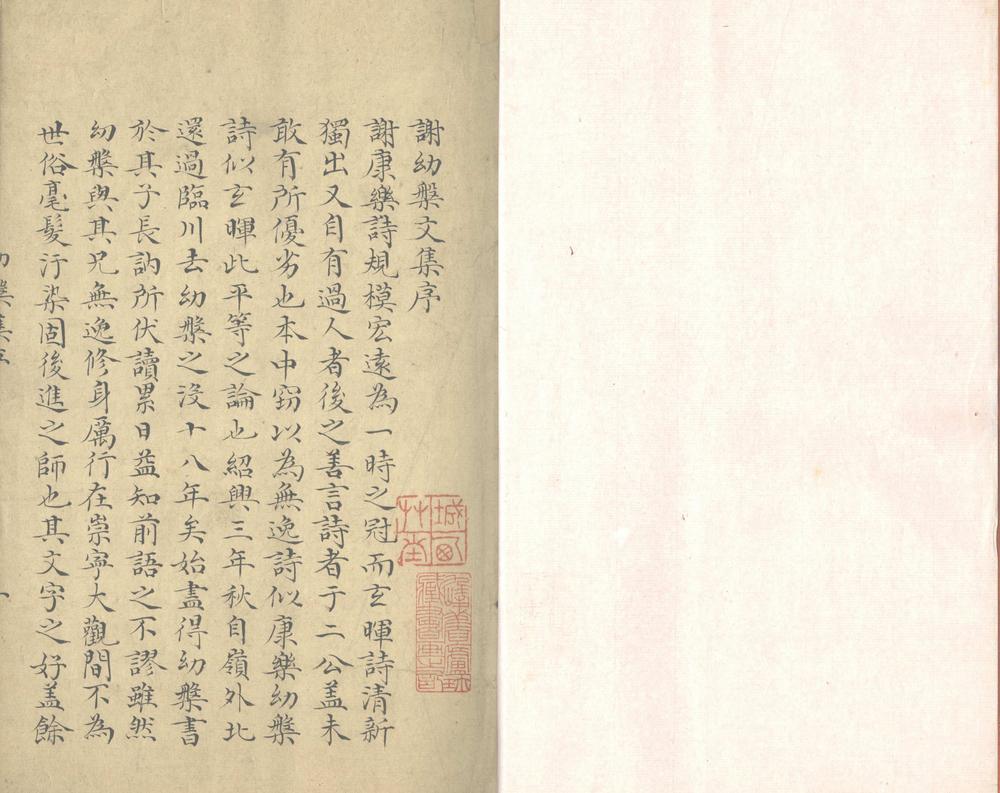 謝幼槃文集序
謝康樂詩規模宏遠為一時之冠而玄暉詩清新
獨出又自有過人者後之善言詩者于二公蓋未
敢有所優劣也本中窃以為無逸詩似康樂幼槃
詩似玄暉此平等之論也紹興三年秋自嶺外北
還過臨川去幼槃之沒十八年矣始盡得幼槃書
於其子長訥所伏讀累日益知前語之不謬雖然
幼槃與其兄無逸修身厲行在崇寧大觀間不為
世俗毫髮汙染固後進之師也其文字之好盖餘